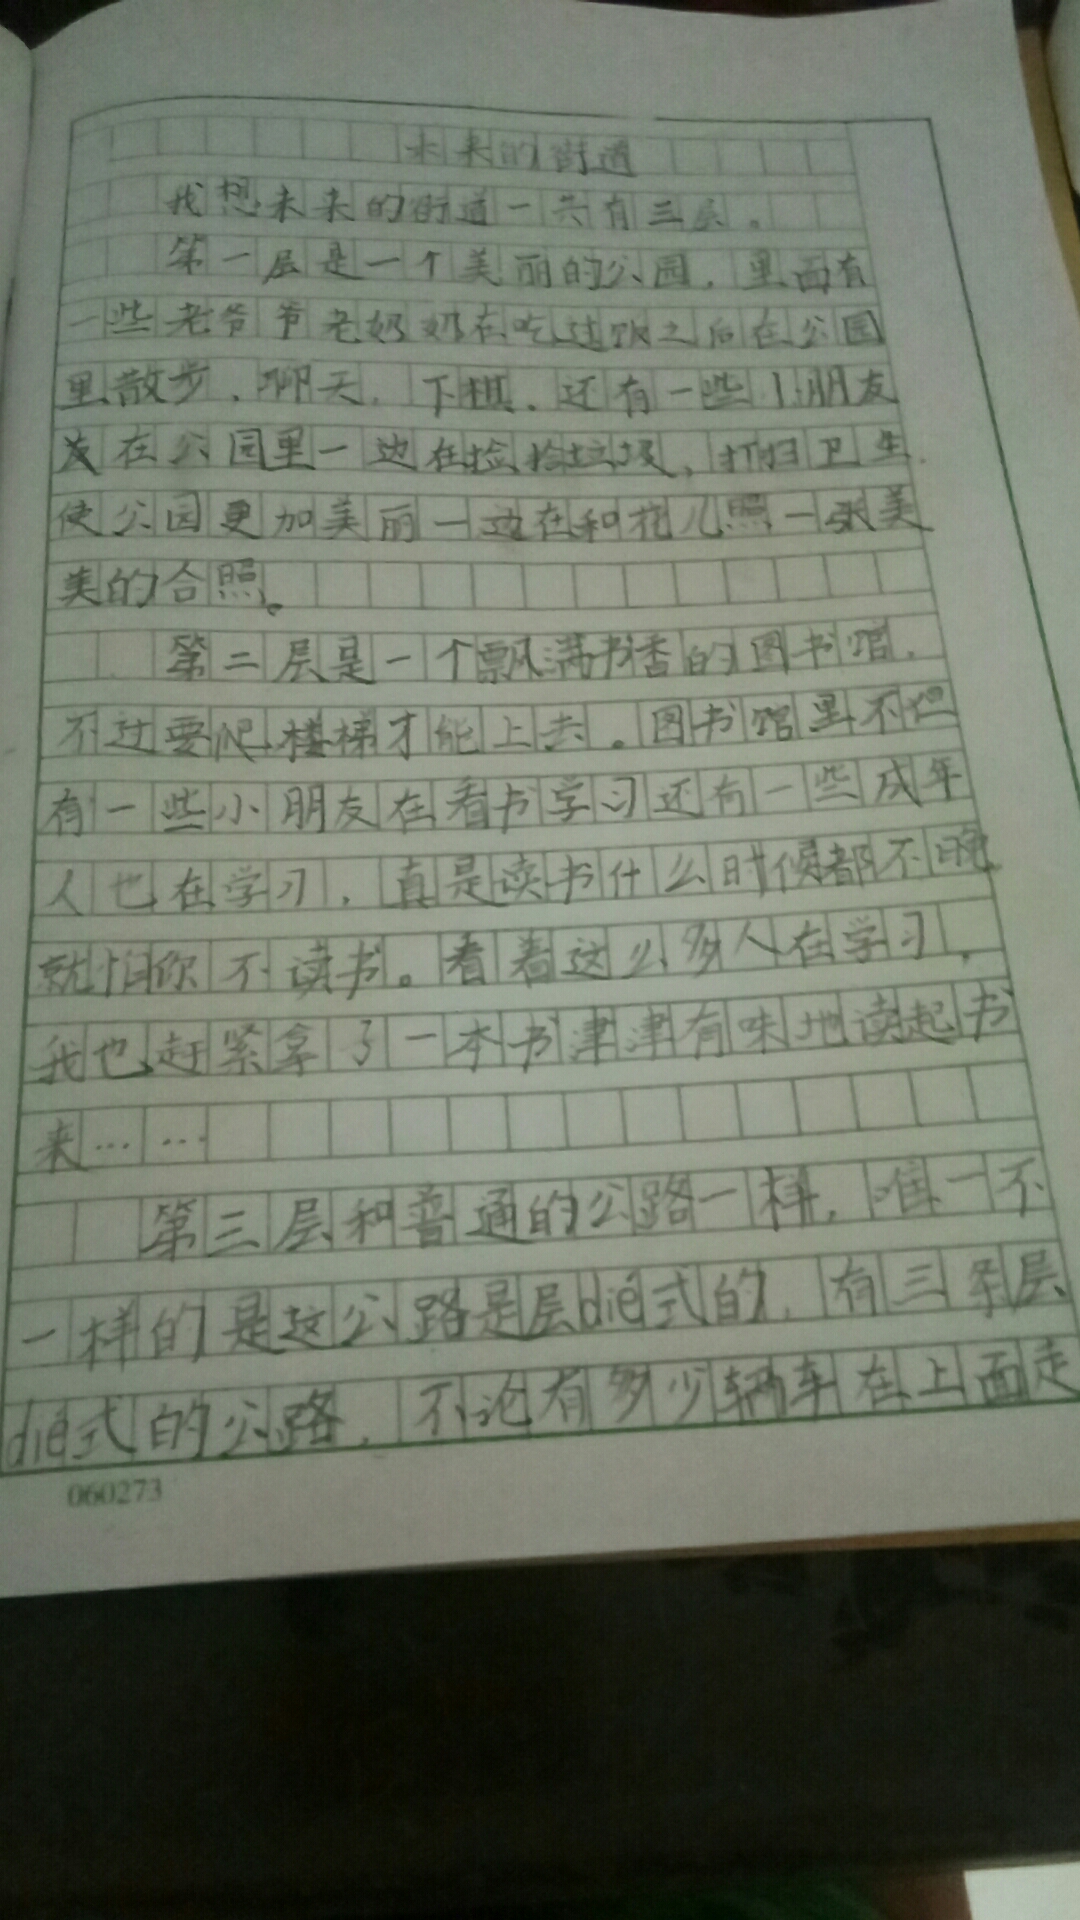 未来的街道
我想未来的街道一共有三层。
第一层是一个美丽的公园，里面有
一些老爷爷老奶奶在吃过饭之后在公园
里散步，聊天，下棋，还有一些小朋友
友在公园里一边在捡拾垃圾，打扫卫生，
使公园更加美丽一边在和花儿照一张美
美的合照。
第二层是一个飘满书香的图书馆，
不过要爬楼梯才能上去。图书馆里不但
有一些小朋友在看书学习还有一些成年
人也在学习，真是读书什么时候都不晚
就怕你不读书。看着这么多人在学习，
我也赶紧拿了一本书津津有味地读起书
来……
第三层和普通的公路一样，唯一不
一样的是这公路是层dié式的，有三条层
dié式的公路，不论有多少辆车在上面走
060273